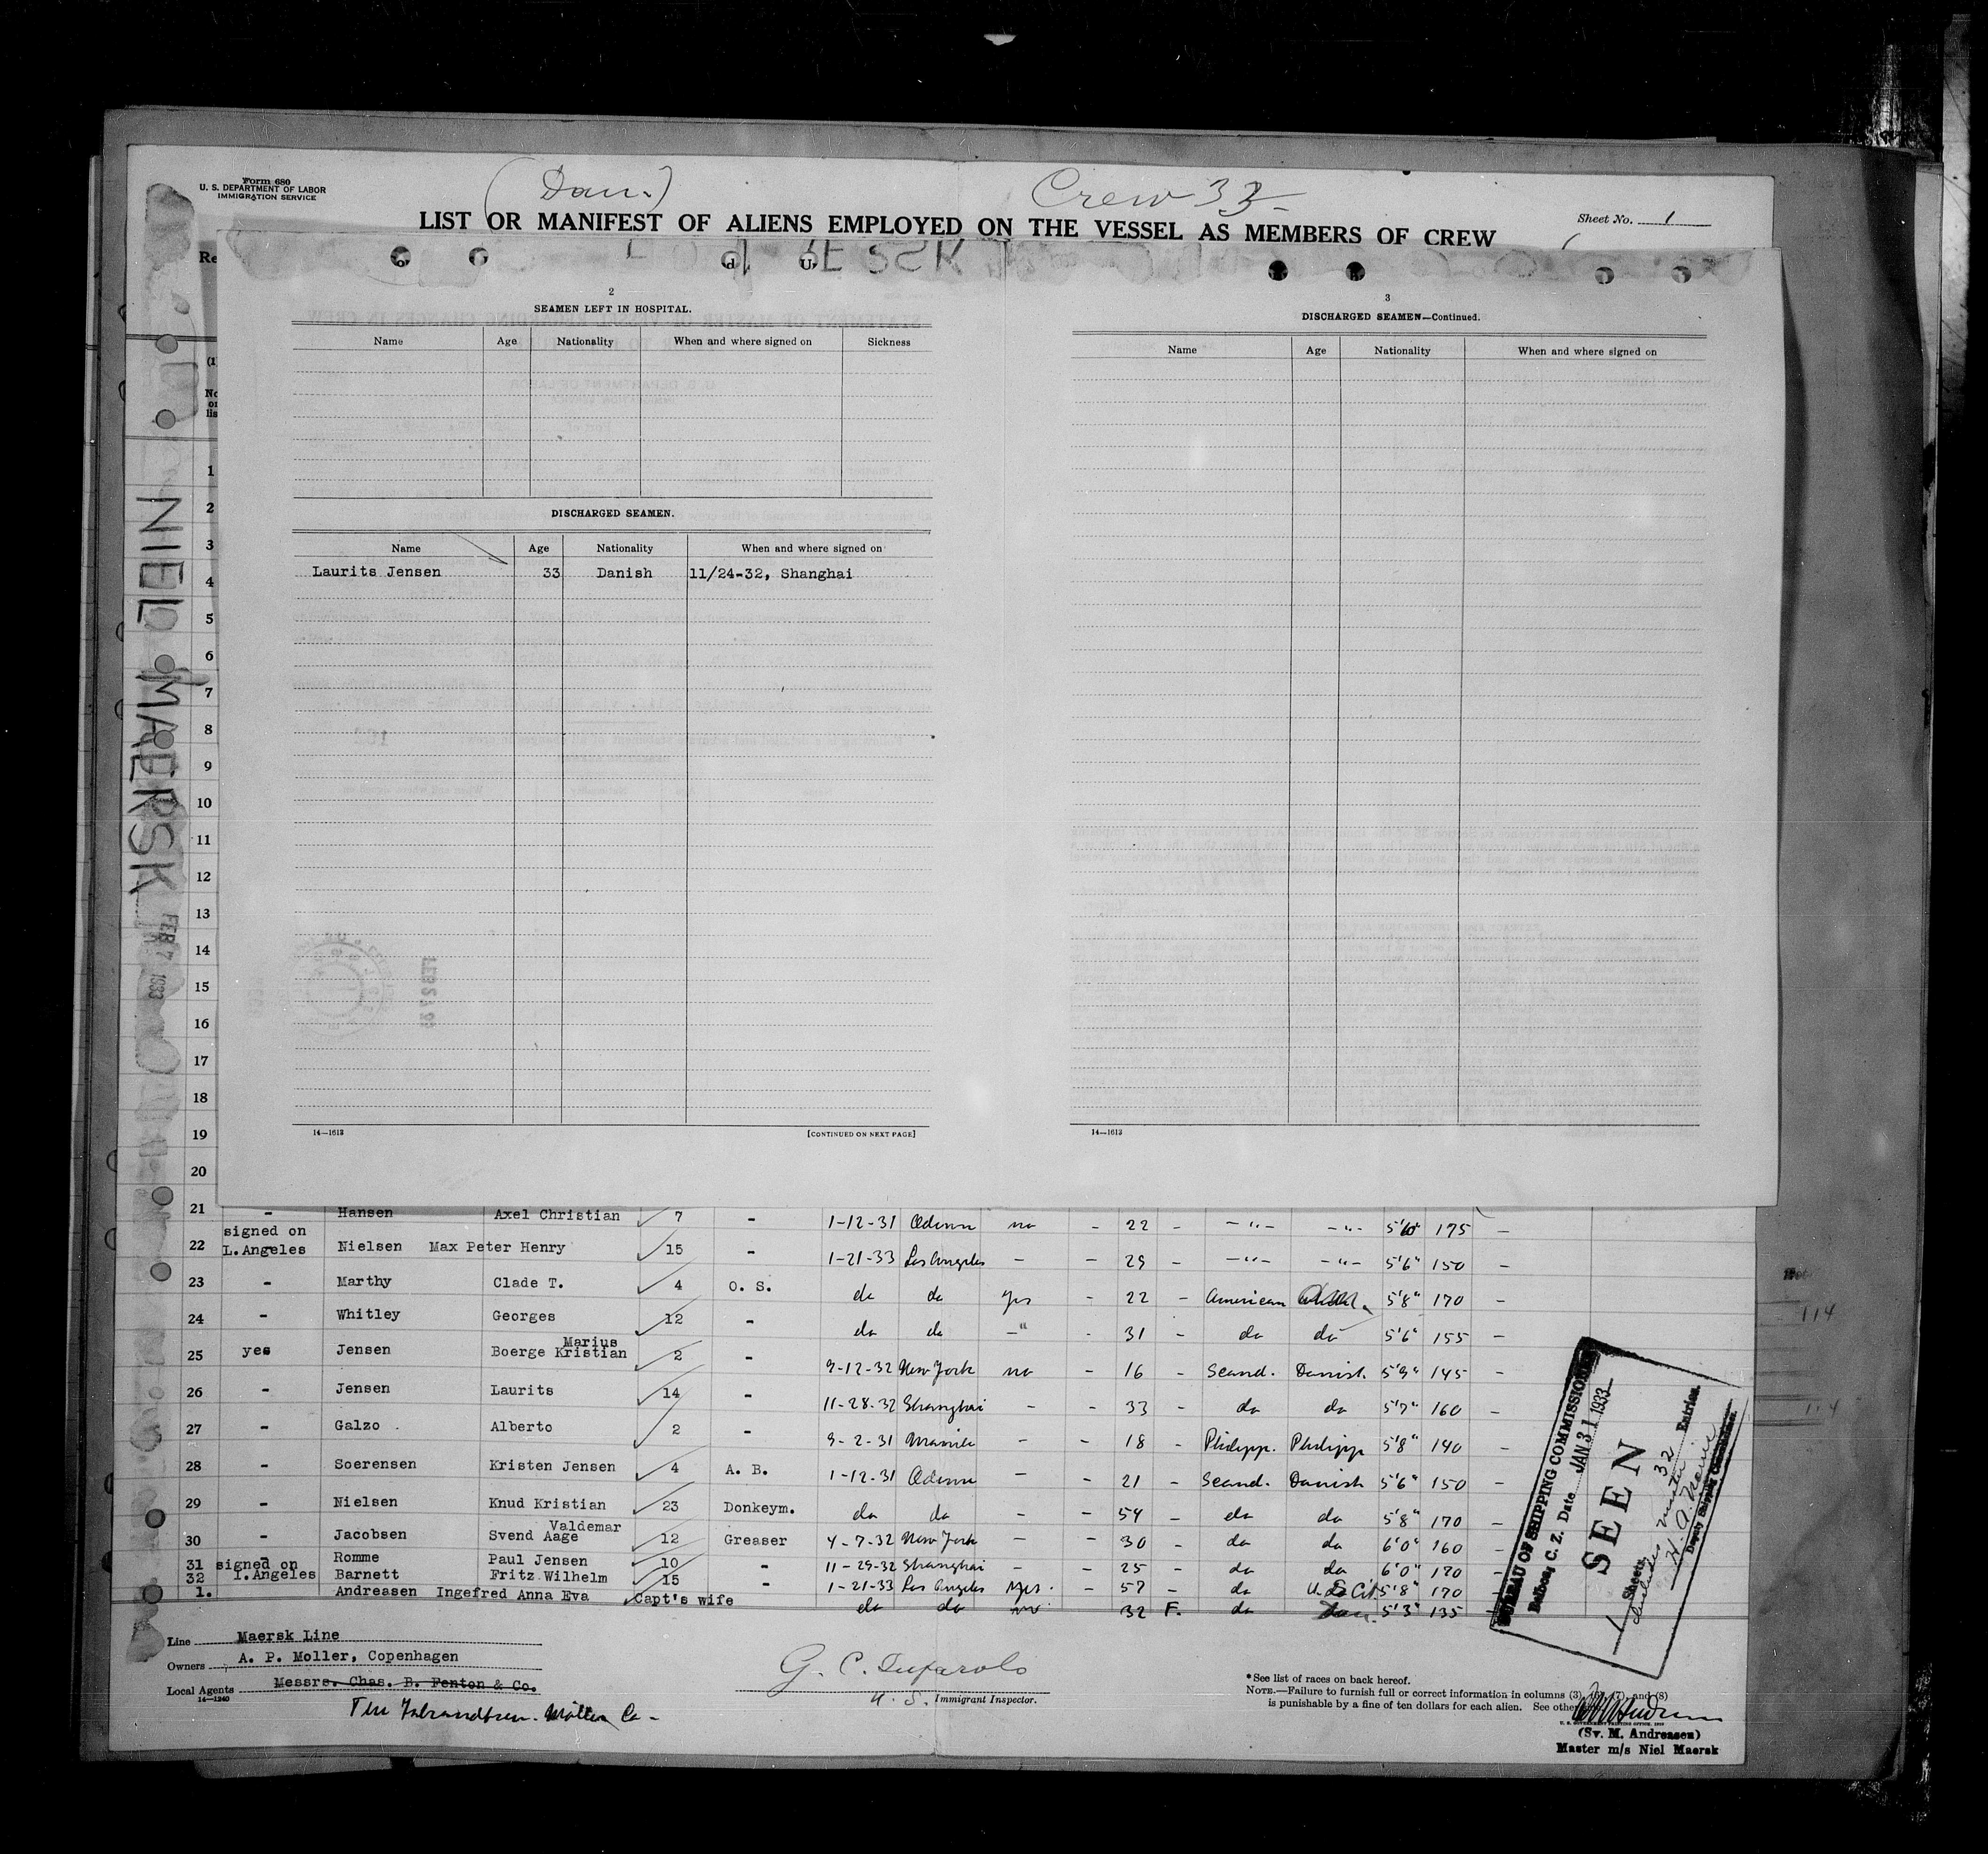 Form 680
U. S. DEPARTMENT OF LABOR
IMMIGRATION SERVICE
(Dan.)
Crew 33
Sheet No. 1
LIST OR MANIFEST OF ALIENS EMPLOYED ON THE VESSEL AS MEMBERS OF CREW
NIEL MAERSK FEB 7 1933
2
SEAMEN LEFT IN HOSPITAL.
Name Age Nationality When and where signed on Sickness
DISCHARGED SEAMEN.
Name Age Nationality When and where signed on
Laurits Jensen 33 Danish 11/24-32, Shanghai
14—1613 [CONTINUED ON NEXT PAGE]
3
DISCHARGED SEAMEN—Continued.
Name Age Nationality When and where signed on
14—1613
1
2
3
4
5
6
7
8
9
10
11
12
13
14
15
16
17
18
19
20
21 - Hansen Axel Christian 7 - 1-12-31 Odense no - 22 - -"- -"- 175 -
22 signed on L.Angeles Nielsen Max Peter Henry 15 - 1-21-33 Los Angeles - - 29 - -"- -"- 5'6" 150 -
23 - Marthy Clade T. 4 O. S. do do yes - 22 - American 5'8" 170 -
24 - Whitley Georges 12 - do do -"- - 31 - do do 5'6" 155 -
25 yes Jensen Boerge Kristian Marius 2 - 9-12-32 New York no - 16 - Scand. Danish 5'9" 145 -
26 - Jensen Laurits 14 - 11-28-32 Shanghai - - 33 - do do 5'7" 160 -
27 - Galzo Alberto 2 - 9-2-31 Manila - - 18 - Philipp. Philipp 5'8" 140 -
28 - Soerensen Kristen Jensen 4 A. B. 1-12-31 Odense - - 21 - Scand. Danish 5'6" 150 -
29 - Nielsen Knud Kristian 23 Donkeym. do do - - 54 - do do 5'8" 170 -
30 - Jacobsen Svend Aage Valdemar 12 Greaser 4-7-32 New York - - 30 - do do 6'0" 160 -
31 - Romme Paul Jensen 10 - 11-29-32 Shanghai - - 25 - do do 6'0" 170 -
32 signed on L.Angeles Barnett Fritz Wilhelm 15 - 1-21-33 Los Angeles yes - 57 - do U.S Cit. 5'8" 170 -
1. Andreasen Ingefred Anna Eva Capt's wife do do no 32 F. do Dan. 5'3" 135
BUREAU OF SHIPPING COMMISSIONER
Balboa, C. Z. Date JAN 31 1933
SEEN
1 Sheets 32 Entries.
includes master
Deputy Shipping Commissioner.
Line Maersk Line
Owners A. P. Moller, Copenhagen
Local Agents Messrs. Chas. B. Fenton & Co.
14—1240
U. S. Immigrant Inspector.
*See list of races on back hereof.
NOTE.—Failure to furnish full or correct information in columns (3), (6), (7), and (8)
is punishable by a fine of ten dollars for each alien. See other
(Sv. M. Andreasen)
Master m/s Niel Maersk